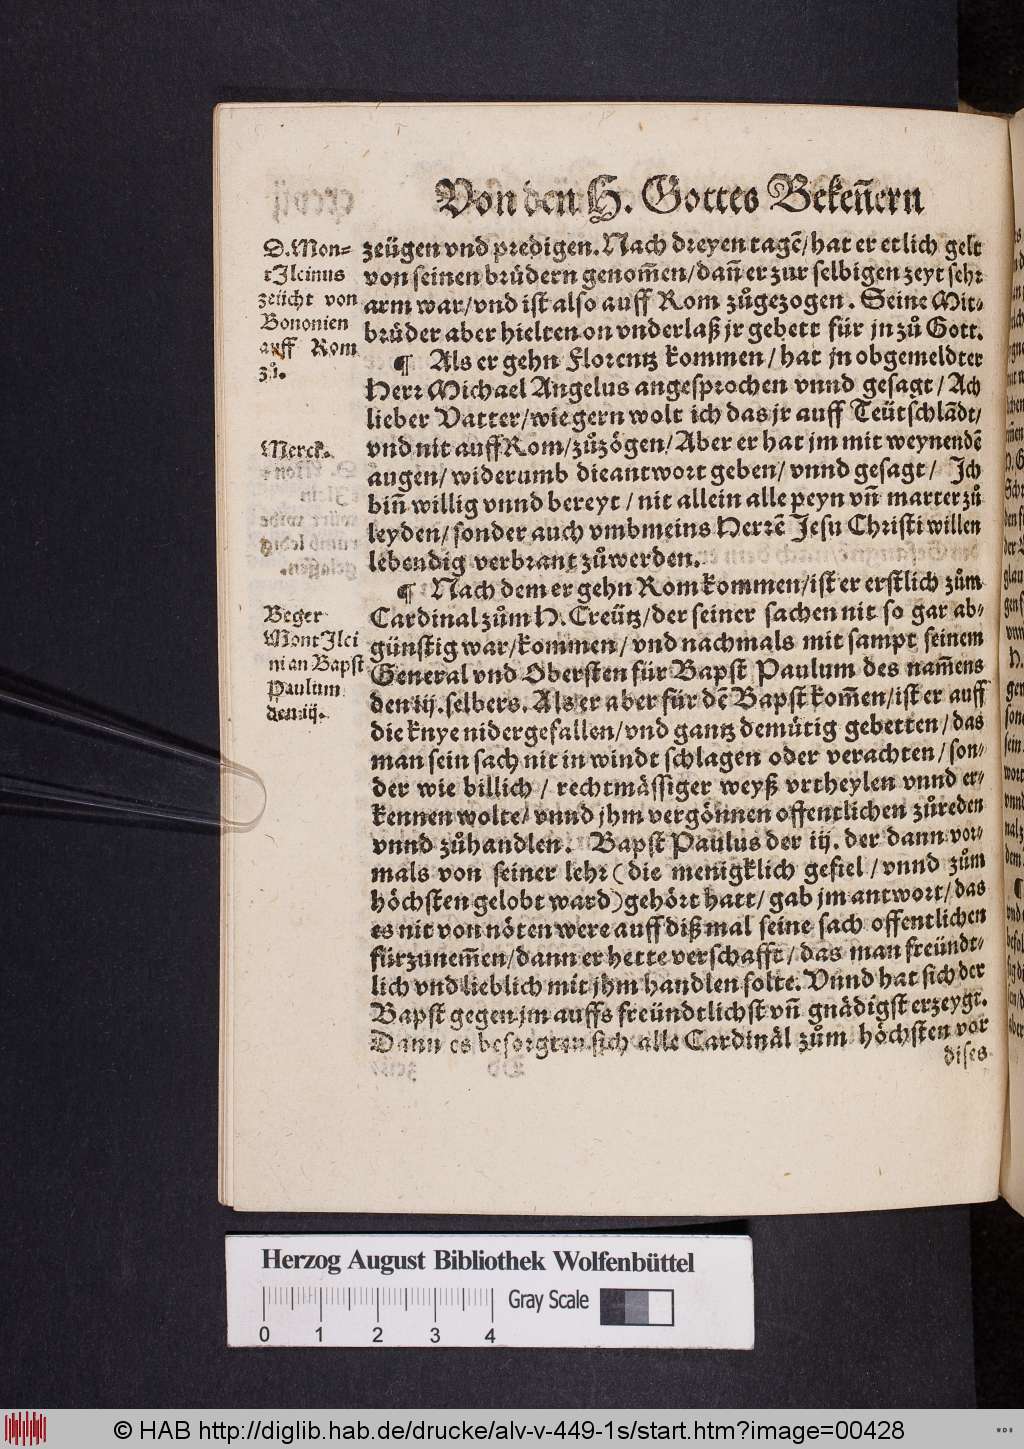 Von den H. Gottes Bekeñern
D. Mon-
t Ilcinus
zeücht von
Bononien
auff Rom
zů.
zeügen vnd predigen. Nach dreyen tagẽ/ hat er etlich gelt
von seinen brüdern genom̃en/ dañ er zur selbigen zeyt sehr
arm war/ vnd ist also auff Rom zůgezogen. Seine Mit-
brüder aber hielten on vnderlaß jr gebett für jn zů Gott.
¶ Als er gehn Florentz kommen/ hat jn obgemeldter
Herr Michael Angelus angesprochen vnnd gesagt/ Ach
lieber Vatter/ wie gern wolt ich das jr auff Teütschlãdt/
Merck.
vnd nit auff Rom/ zůzögen/ Aber er hat jm mit weynendẽ
augen/ widerumb die antwort geben/ vnnd gesagt/ Ich
biñ willig vnnd bereyt/ nit allein alle peyn vñ marter zů
leyden/ sonder auch vmb meins Herrẽ Jesu Christi willen
lebendig verbrant zůwerden.
¶ Nach dem er gehn Rom kommen/ ist er erstlich zům
Beger
Mont Ilci
ni an Bapst
Paulum
den iij.
Cardinal zům H. Creütz/ der seiner sachen nit so gar ab-
günstig war/ kommen/ vnd nachmals mit sampt seinem
General vnd Obersten für Bapst Paulum des nam̃ens
den iij. selbers. Als er aber für dẽ Bapst kom̃en/ ist er auff
die knye nidergefallen/ vnd gantz demütig gebetten/ das
man sein sach nit in windt schlagen oder verachten/ son-
der wie billich/ rechtmässiger weyß vrtheylen vnnd er-
kennen wolte/ vnnd jhm vergönnen offentlichen zůreden
vnnd zůhandlen. Bapst Paulus der iij. der dann vor-
mals von seiner lehr (die menigklich gefiel/ vnnd zům
höchsten gelobt ward) gehört hatt/ gab jm antwort/ das
es nit von nöten were auff diß mal seine sach offentlichen
fürzunem̃en/ dann er hette verschafft/ das man freündt-
lich vnd lieblich mit jhm handlen solte. Vnnd hat sich der
Bapst gegen jm auffs freündtlichst vñ gnädigst erzeygt.
Dann es besorgten sich alle Cardinäl zům höchsten vor
dises
Herzog August Bibliothek Wolfenbüttel
0 1 2 3 4 Gray Scale
© HAB http://diglib.hab.de/drucke/alv-v-449-1s/start.htm?image=00428